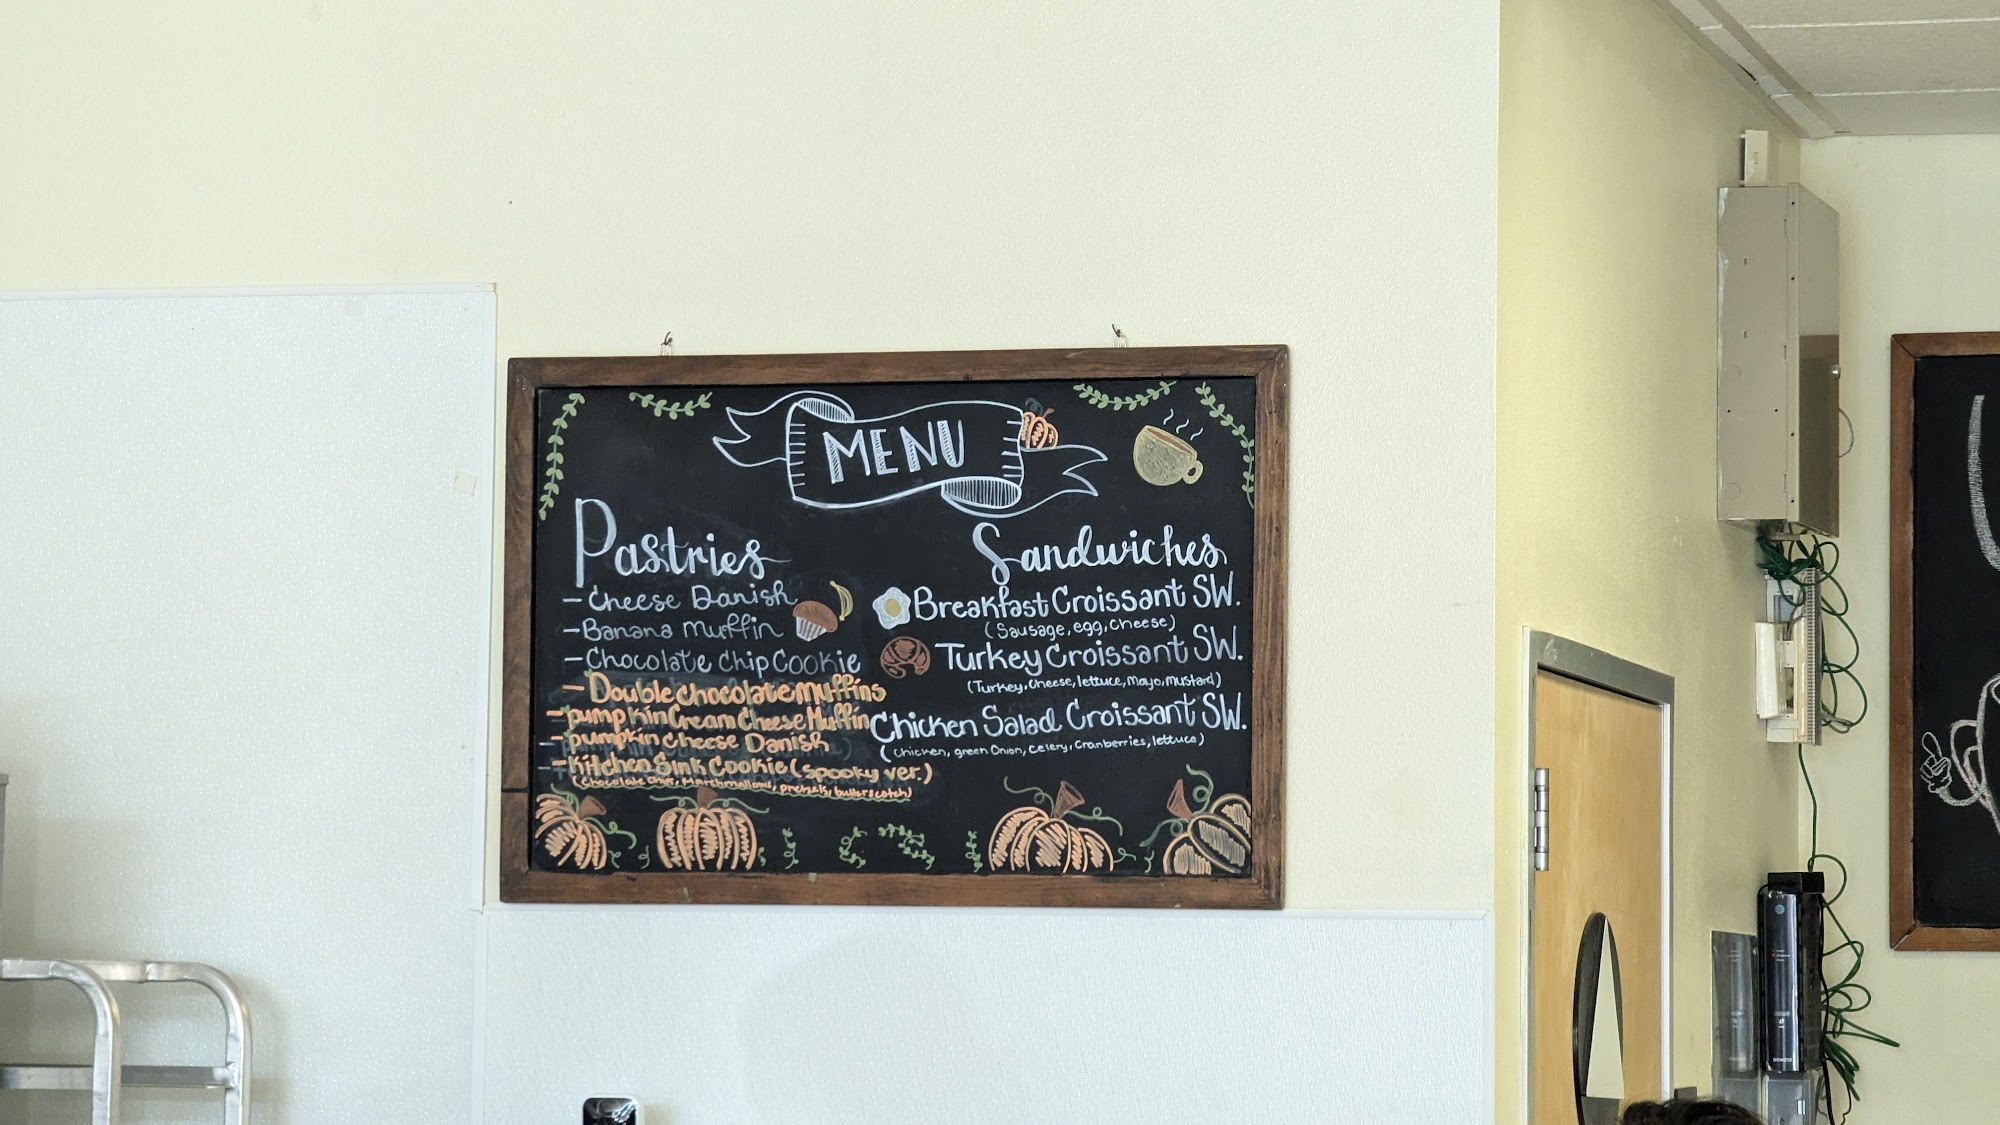 MENU
Pastries
- Cheese Danish
- Banana Muffin
- Chocolate Chip Cookie
- Double chocolate muffins
- pumpkin Cream Cheese Muffin
- pumpkin cheese Danish
- Kitchen Sink Cookie (spooky ver.)
(Chocolate Chip, Marshmallows, pretzels, butterscotch)
Sandwiches
Breakfast Croissant SW.
(Sausage, egg, cheese)
Turkey Croissant SW.
(Turkey, cheese, lettuce, mayo, mustard)
Chicken Salad Croissant SW.
(chicken, green Onion, celery, Cranberries, lettuce)